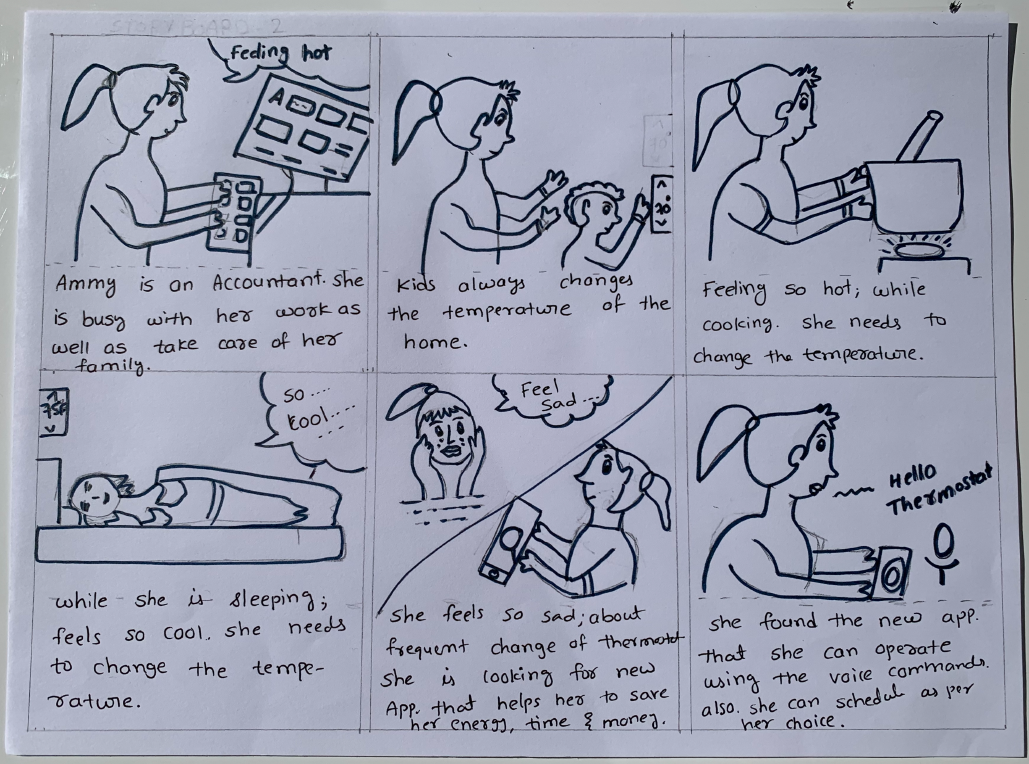 STORYBOARD - 2
Feeling hot
A
Ammy is an Accountant. She
is busy with her work as
well as take care of her
family.
70
20°
Kids always changes
the temperature of the
home.
Feeling so hot; while
cooking. she needs to
change the temperature.
75F
SO ....
Cool....
while she is sleeping;
feels so cool. she needs
to change the tempe-
rature.
Feel
Sad ...
she feels so sad; about
frequent change of thermostat
she is looking for new
App. that helps her to save
her energy, time & money.
Hello
Thermostat
she found the new app.
that she can operate
using the voice commands.
also. she can schedul as per
her choice.